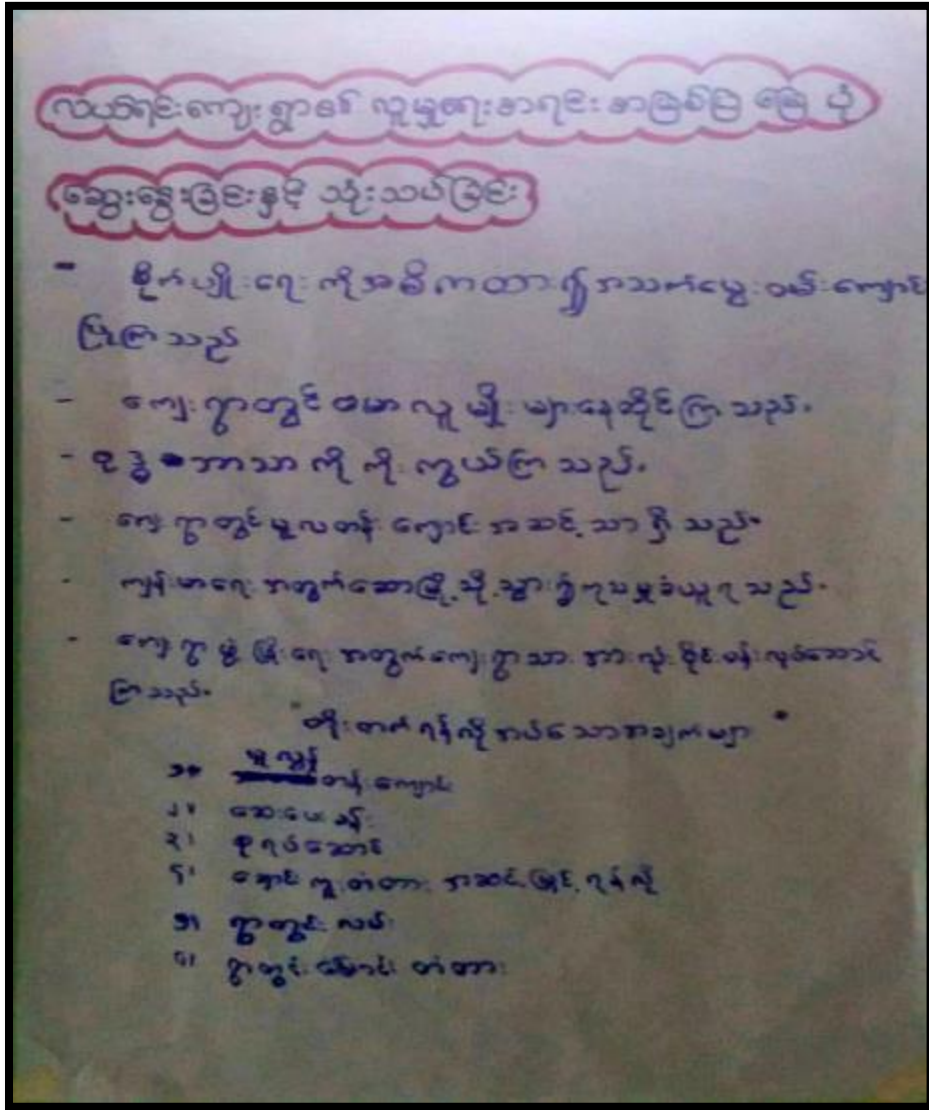 လယ်ရင်းကျေးရွာ၏ လူမှုရေးစာရင်း စာဖြစ်ပြ မြေပုံ
ဆွေးနွေးခြင်းနှင့် သုံးသပ်ခြင်း
- စိုက်ပျိုးရေးကိုအဓိကထား၍အသက်မွေးဝမ်းကျောင်း
ပြုကြသည်
- ကျေးရွာတွင်ဗမာလူမျိုးများနေထိုင်ကြသည်။
- ဗုဒ္ဓဘာသာကိုကိုးကွယ်ကြသည်။
- ကျေးရွာတွင်မူလတန်းကျောင်းအဆင့်သာရှိသည်။
- ကျန်းမာရေးအတွက်ဆေးမြို့သို့သွား၍ကုသမှုခံယူရသည်။
- ကျေးရွာဖွံ့ဖြိုးရေးအတွက်ကျေးရွာသားအားလုံးဝိုင်းဝန်းလုပ်ဆောင်
ကြသည်။
"တိုးတက်ရန်လိုအပ်သောအချက်များ"
၁။ မူလွန်တန်းကျောင်း
၂။ ဆေးပေးခန်း
၃။ စုရပ်ဆောင်
၄။ ချောင်းကူးတံတားအဆင့်မြှင့်ရန်လို
၅။ ရွာတွင်းလမ်း
၆။ ရွာတွင်းမြောင်းတံတား